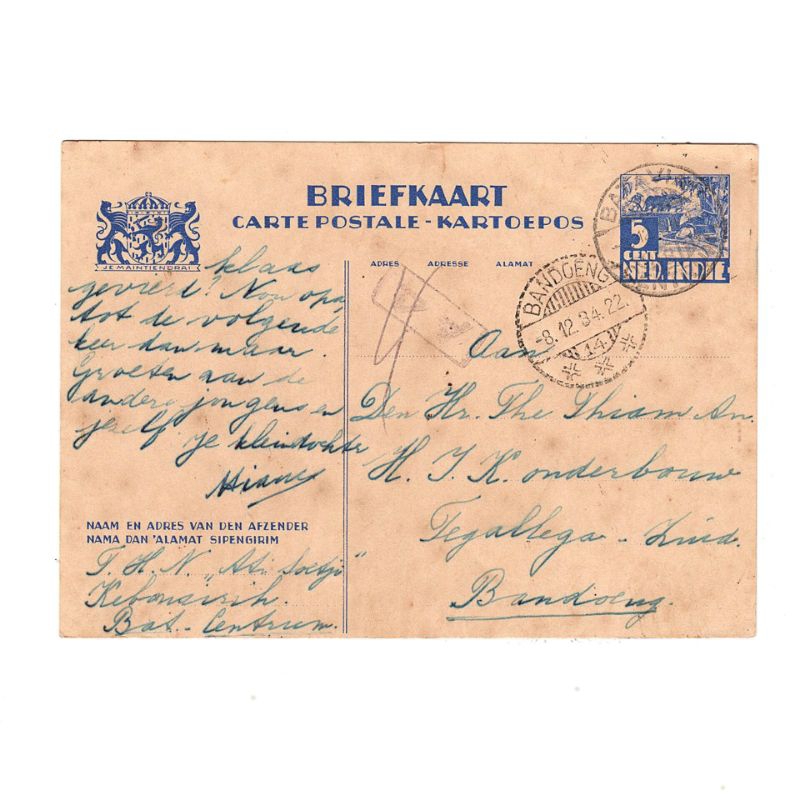 BRIEFKAART
CARTE POSTALE - KARTOEPOS
JE MAINTIENDRAI
5
CENT
NED. INDIE
ADRES ADRESSE ALAMAT
BANDOENG
-8.12.34.22
14
klaas
gevierd? Nou opa,
tot de volgende
keer dan maar.
Groeten aan de
andere jongens en
jezelf je kleindochter
Aan
Den Hr. The Thiam An.
H. J. K. onderbouw
Tegallega - Zuid.
Bandoeng.
NAAM EN ADRES VAN DEN AFZENDER
NAMA DAN 'ALAMAT SIPENGIRIM
T. H. N. „Ati Soetji
Kebonsirih.
Bat. Centrum.